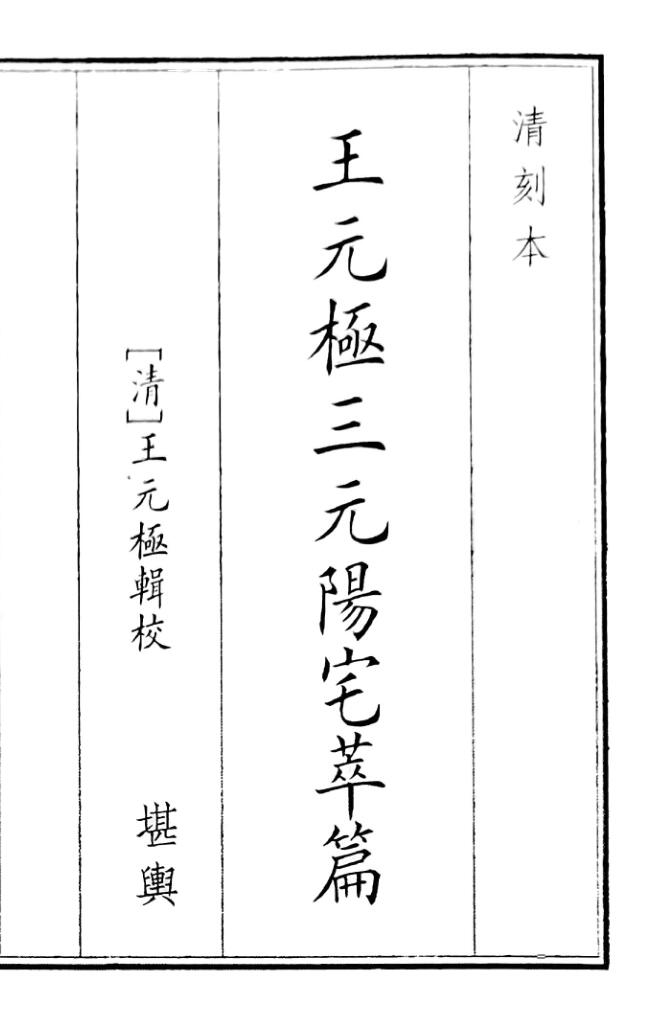 清刻本
王元極三元陽宅萃篇
[清]王元極輯校
堪輿